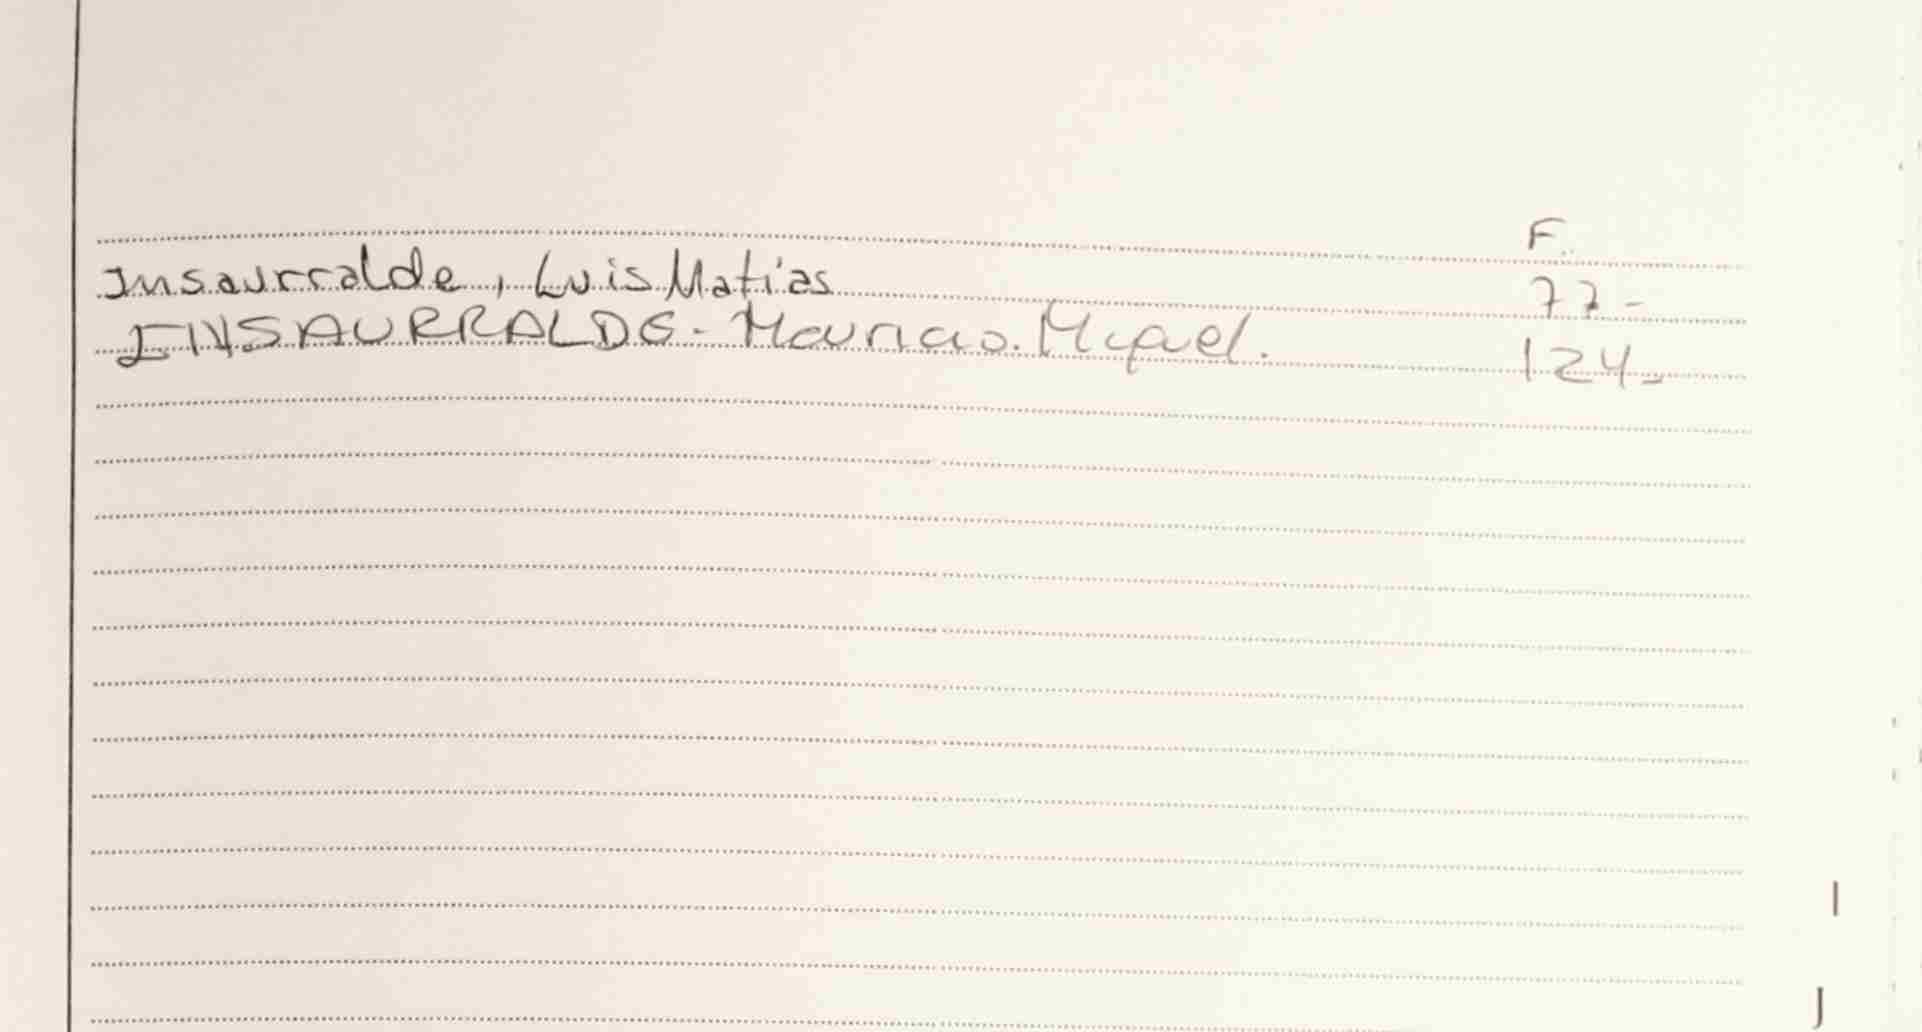 F.
Insaurralde, Luis Matías 77-
INSAURRALDE - Mauricio. Miguel. 124-
I
J